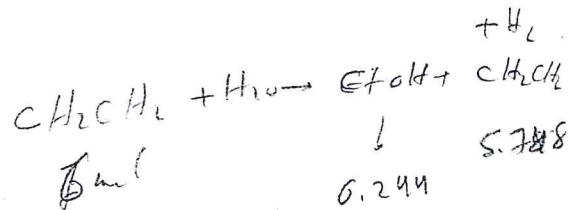 + H₂
CH₂CH₂ + H₂O → EtOH + CH₂CH₂
6 ml ↓ 5.748
0.244